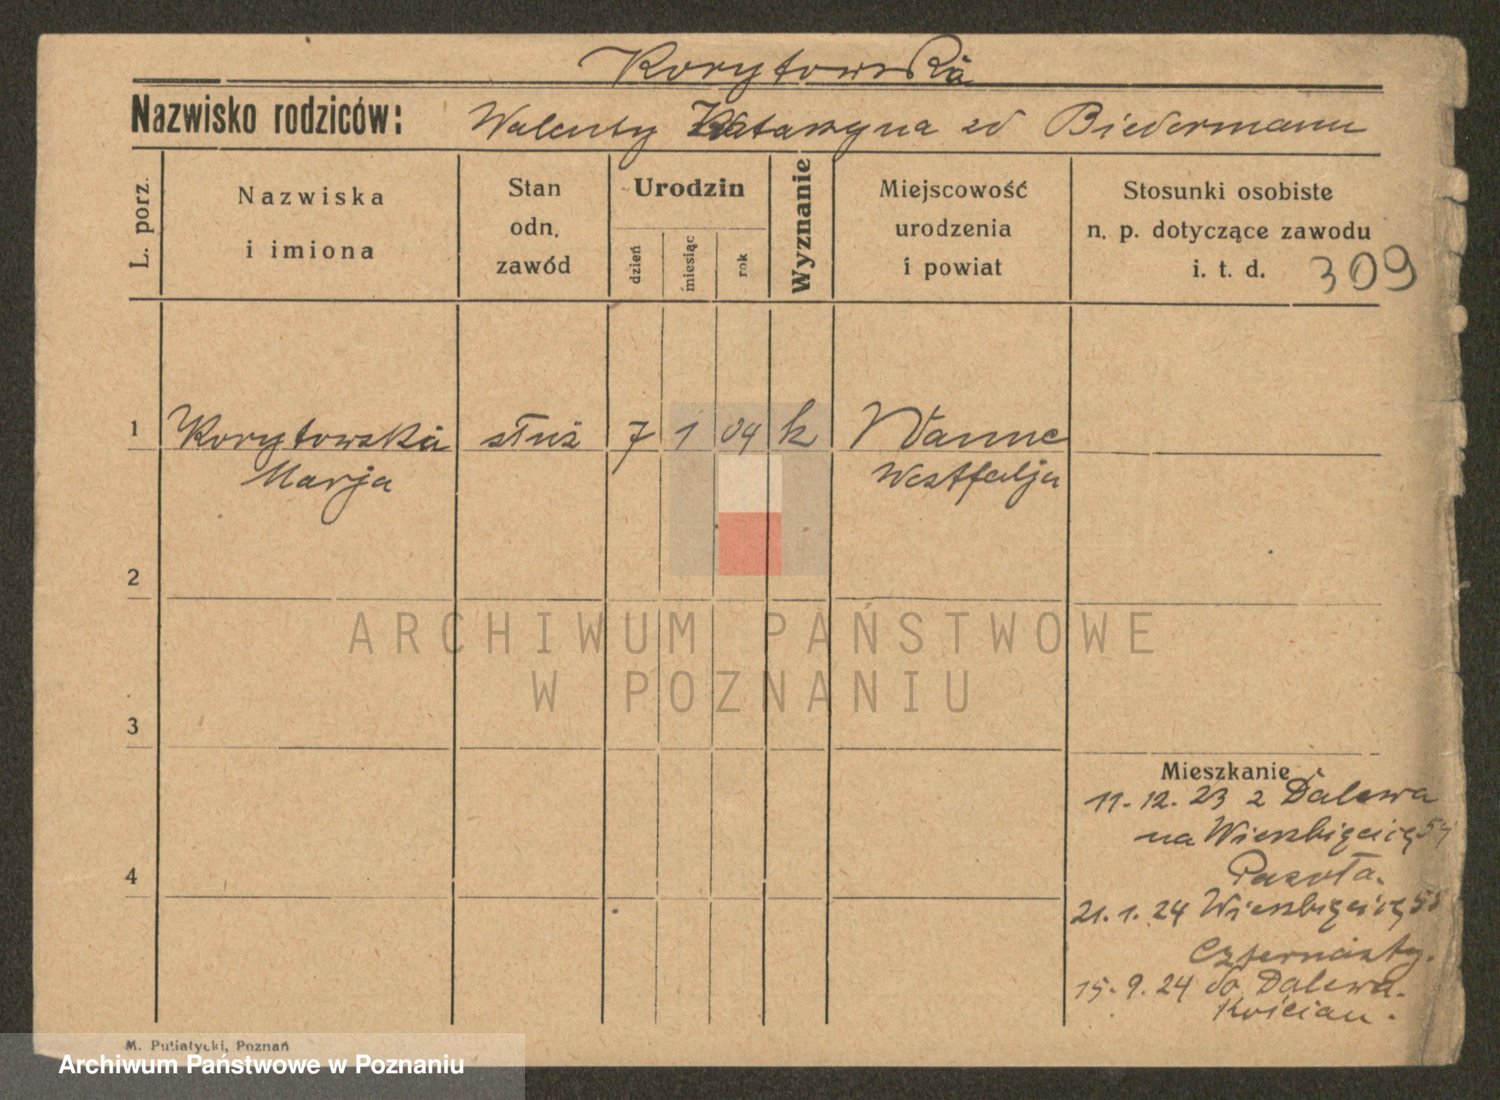 Korytowska
Nazwisko rodziców: Walenty Katarzyna zd Biedermann
L. porz.
Nazwiska
i imiona
Stan
odn.
zawód
Urodzin
dzień
miesiąc
rok
Wyznanie
Miejscowość
urodzenia
i powiat
Stosunki osobiste
n. p. dotyczące zawodu
i. t. d. 309
1 Korytowska służ 7 1 04 k Wanne
Marja Westfalja
2
3
Mieszkanie
11. 12. 23 z Dalewa
na Wierzbięcicę
4
21. 1. 24 Wierzbięcicę 58
15. 9. 24 do Dalewa.
Kościan.
M. Putiatycki, Poznań
ARCHIWUM PAŃSTWOWE
W POZNANIU
Archiwum Państwowe w Poznaniu